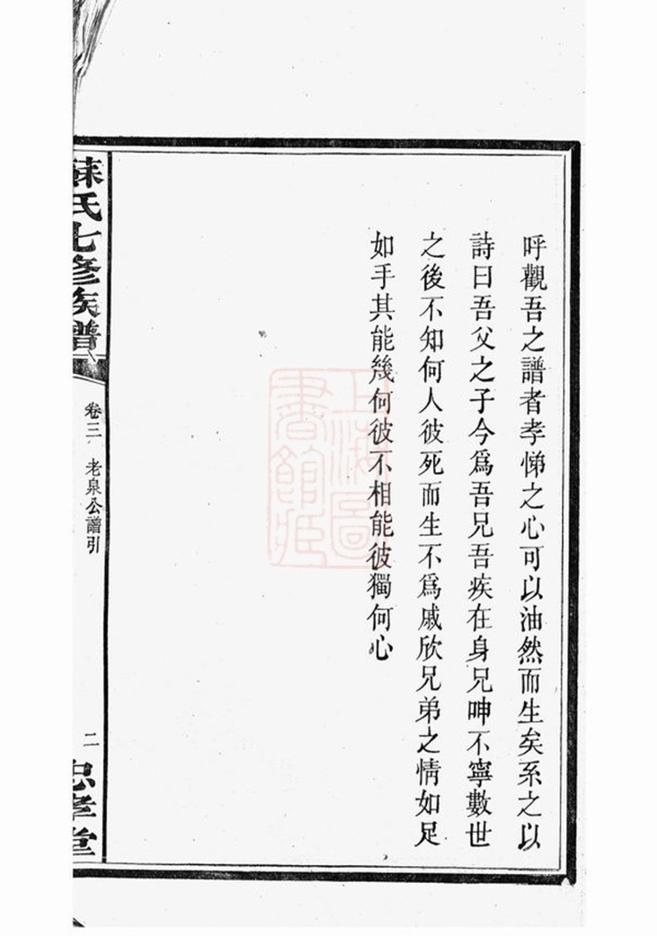 呼觀吾之譜者孝悌之心可以油然而生矣系之以
詩曰吾父之子今爲吾兄吾疾在身兄呻不寧數世
之後不知何人彼死而生不爲戚欣兄弟之情如足
如手其能幾何彼不相能彼獨何心
蘇氏七修族譜
卷三 老泉公譜引
二
忠孝堂
上海圖
書館藏